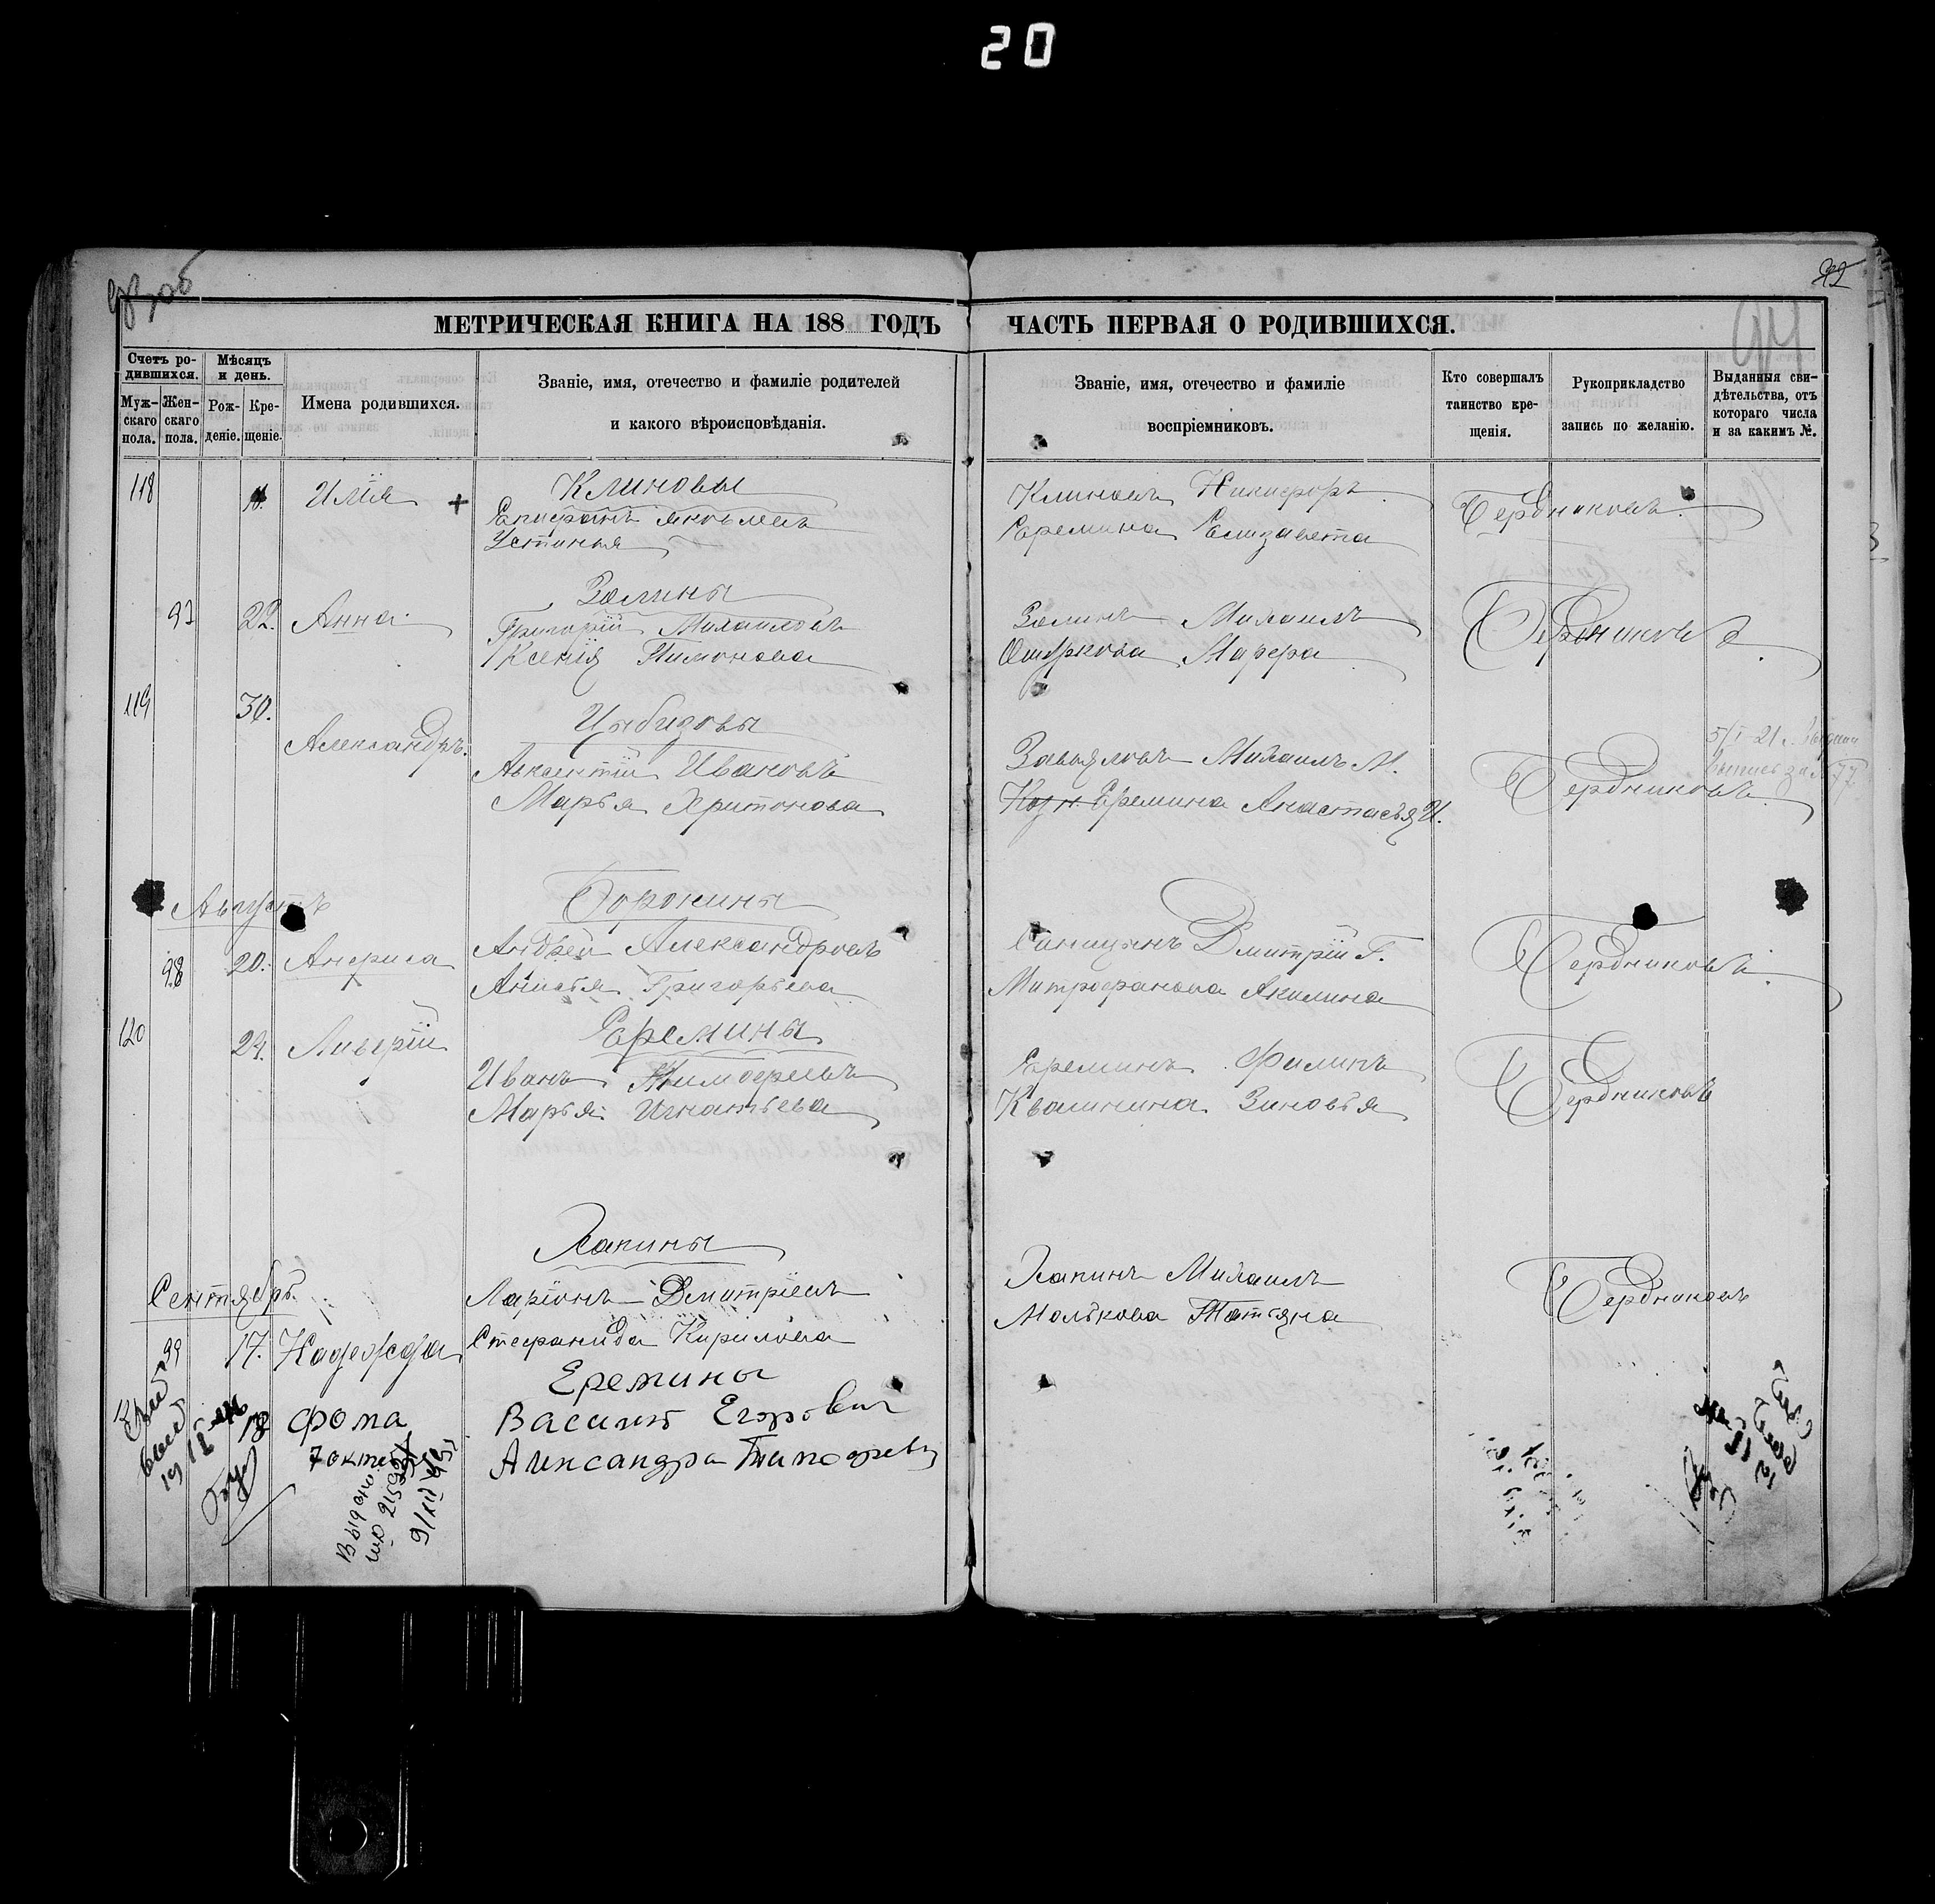 20
93об
92
94
МЕТРИЧЕСКАЯ КНИГА НА 188 ГОДЪ
ЧАСТЬ ПЕРВАЯ О РОДИВШИХСЯ.
Счетъ родившихся.
Мужскаго пола.
Женскаго пола.
Мѣсяцъ и день.
Рожденіе.
Крещеніе.
Имена родившихся.
Званіе, имя, отечество и фамиліе родителей
и какого вѣроисповѣданія.
Званіе, имя, отечество и фамиліе
воспріемниковъ.
Кто совершалъ
таинство крещенія.
Рукоприкладство
запись по желанію.
Выданныя свидѣтельства, отъ
котораго числа
и за какимъ №.
118 Илія +
Климовы
Епифанъ Яковлевъ
Устинья
Климовъ Никифоръ
Еремина Елизавета
Бердниковъ
97 22. Анна
Зомины
Григорій Михаиловъ
Ксенія Тимонова
Зоминъ Михаилъ
Марфа
Бердниковъ
119 30.
Александръ.
Цыбизовы
Авксентій Ивановъ
Марья Харитонова
Завьяловъ Михаилъ М.
Еремина Анастасья И.
Бердниковъ
5/I-21 г. Выдана
выпись за № 77
Августъ
98 20. Анфиса
Воронины
Андрей Александровъ
Анисья Григорьева
Синицынъ Дмитрій Г.
Митрофанова Акилина
Бердниковъ
120 24. Ливерій
Еремины
Иванъ Тимофеевъ
Марья Игнатьева
Ереминъ Филипъ
Квашнина Зиновья
Бердниковъ
Сентябрь
Хапины
Ларіонъ Дмитріевъ
99 17. Надежда Стефанида Кирилова
Хапинъ Михаилъ
Молькова Татьяна
Бердниковъ
Еремины
18 Фома
Василій Егорович
7 окт
Александра Тимофев
Выдано
9/XII